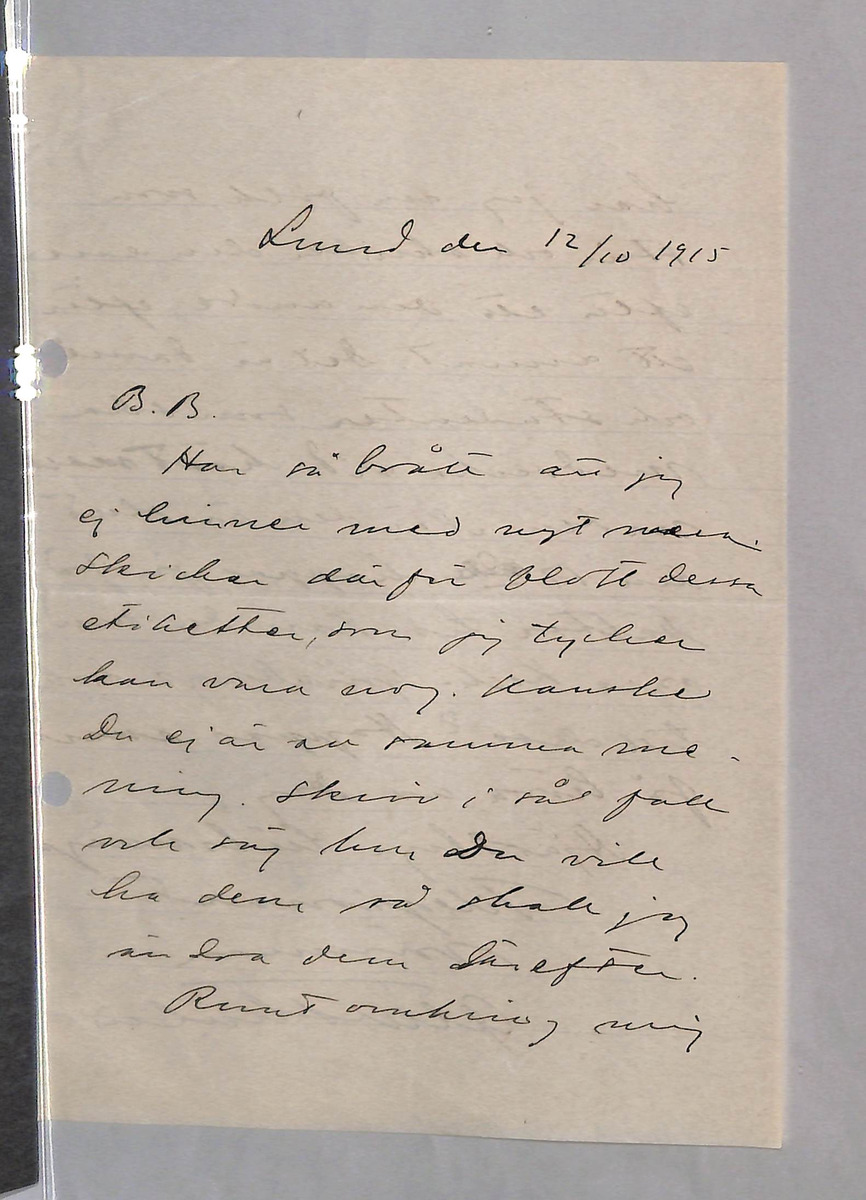 Lund den 12/10 1915
B. B.
Har så brått att jag
ej hinner med nyt mera.
Skickar därför blott dessa
etiketter, som jag tycker
kan vara nog. Kanske
Du ej är av samma me-
ning. Skriv i så fall
och säg hur Du vill
ha dem så skall jag
ändra dem därefter.
Rundt omkring mig